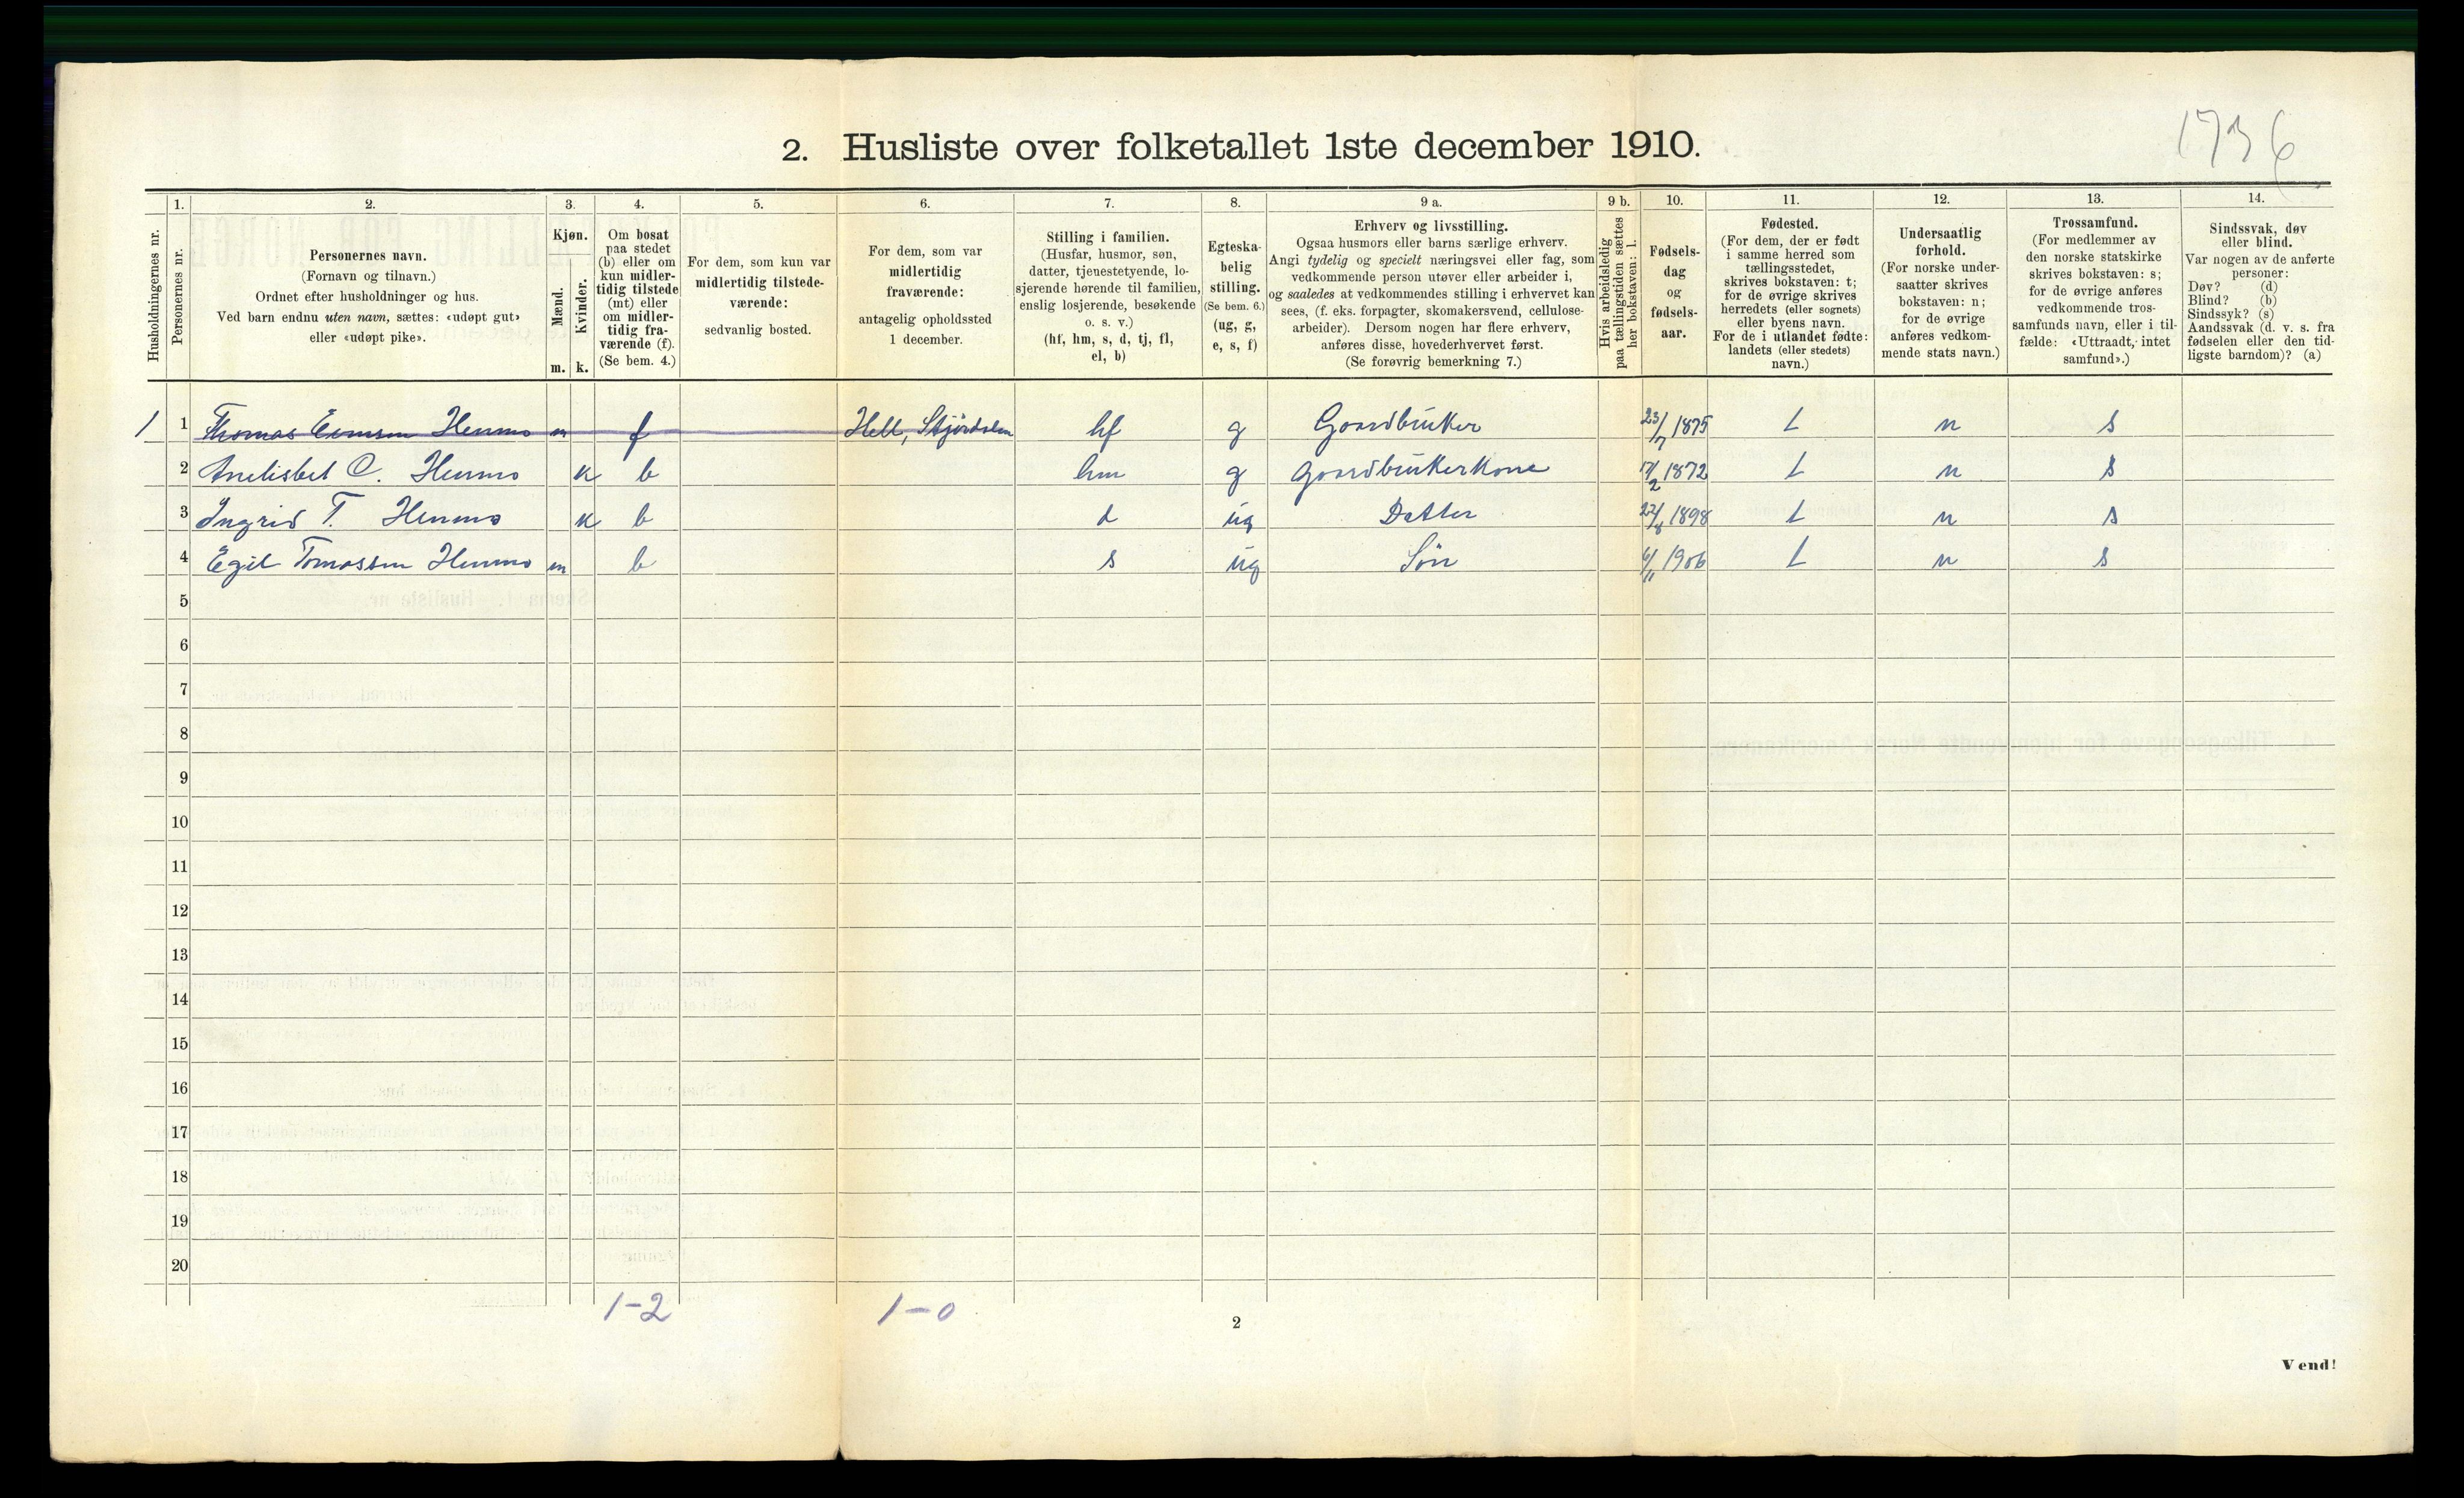 1736
2. Husliste over folketallet 1ste december 1910.
1. 2. 3. 4. 5. 6. 7. 8. 9 a. 9 b. 10. 11. 12. 13. 14.
Husholdningernes nr.
Personernes nr.
Personernes navn.
(Fornavn og tilnavn.)
Ordnet efter husholdninger og hus.
Ved barn endnu uten navn, sættes: «udøpt gut»
eller «udøpt pike».
Kjøn.
Mænd.
Kvinder.
m. k.
Om bosat
paa stedet
(b) eller om
kun midler-
tidig tilstede
(mt) eller
om midler-
tidig fra-
værende (f).
(Se bem. 4.)
For dem, som kun var
midlertidig tilstede-
værende:
sedvanlig bosted.
For dem, som var
midlertidig
fraværende:
antagelig opholdssted
1 december.
Stilling i familien.
(Husfar, husmor, søn,
datter, tjenestetyende, lo-
sjerende hørende til familien,
enslig losjerende, besøkende
o. s. v.)
(hf, hm, s, d, tj, fl,
el, b)
Egteska-
belig
stilling.
(Se bem. 6.)
(ug, g,
e, s, f)
Erhverv og livsstilling.
Ogsaa husmors eller barns særlige erhverv.
Angi tydelig og specielt næringsvei eller fag, som
vedkommende person utøver eller arbeider i,
og saaledes at vedkommendes stilling i erhvervet kan
sees, (f. eks. forpagter, skomakersvend, cellulose-
arbeider). Dersom nogen har flere erhverv,
anføres disse, hovederhvervet først.
(Se forøvrig bemerkning 7.)
Hvis arbeidsledig
paa tællingstiden sættes
her bokstaven: l.
Fødsels-
dag
og
fødsels-
aar.
Fødested.
(For dem, der er født
i samme herred som
tællingsstedet,
skrives bokstaven: t;
for de øvrige skrives
herredets (eller sognets)
eller byens navn.
For de i utlandet fødte:
landets (eller stedets)
navn.)
Undersaatlig
forhold.
(For norske under-
saatter skrives
bokstaven: n;
for de øvrige
anføres vedkom-
mende stats navn.)
Trossamfund.
(For medlemmer av
den norske statskirke
skrives bokstaven: s;
for de øvrige anføres
vedkommende tros-
samfunds navn, eller i til-
fælde: «Uttraadt, intet
samfund».)
Sindssvak, døv
eller blind.
Var nogen av de anførte
personer:
Døv? (d)
Blind? (b)
Sindssyk? (s)
Aandssvak (d. v. s. fra
fødselen eller den tid-
ligste barndom)? (a)
1 1 Thomas Hemmo m f Hell, Stjørdalen hf g Gaardbruker 23/7 1875 t n s
2 Anelisbet O. Hemmo k b hm g Gaardbrukerkone 17/2 1872 t n s
3 Ingrid T. Hemmo k b d ug Datter 27/8 1898 t n s
4 Egil Tomassen Hemmo m b s ug Søn 6/11 1906 t n s
5
6
7
8
9
10
11
12
13
14
15
16
17
18
19
20
1-2 1-0
2
Vend!